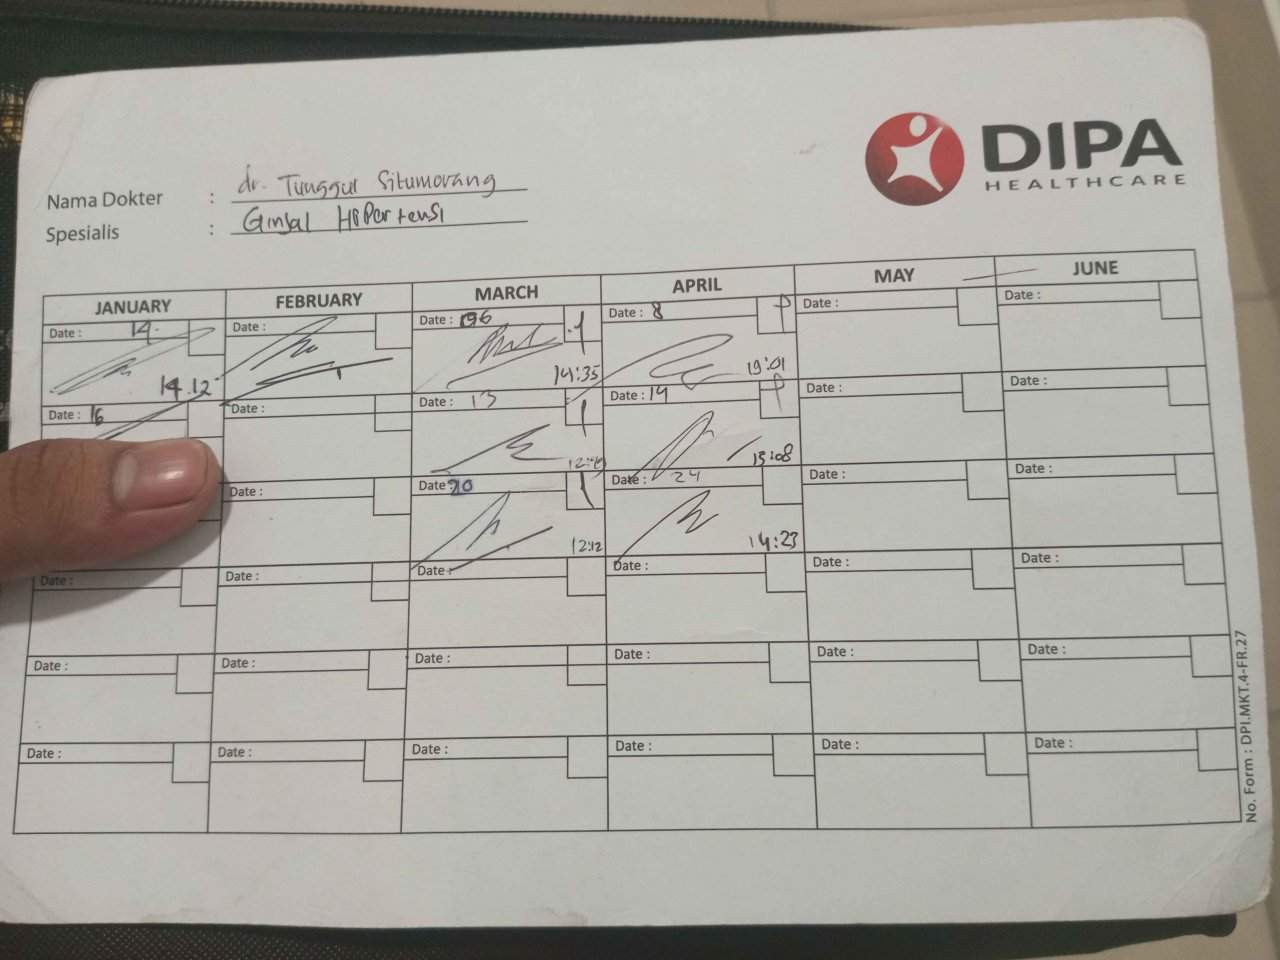 DIPA
HEALTHCARE
Nama Dokter : dr. Tunggul Situmorang
Spesialis : Ginjal Hipertensi
JANUARY FEBRUARY MARCH APRIL MAY JUNE
Date : 14 Date : Date : 06 Date : 8 Date : Date :
14.12 14:35 19:01
Date : 16 Date : Date : 13 Date : 14 Date : Date :
15:08
Date : Date : 20 Date : 24 Date : Date :
12:12 14:23
Date : Date : Date : Date : Date : Date :
Date : Date : Date : Date : Date : Date :
Date : Date : Date : Date : Date : Date :
No. Form : DPI.MKT.4-FR.27